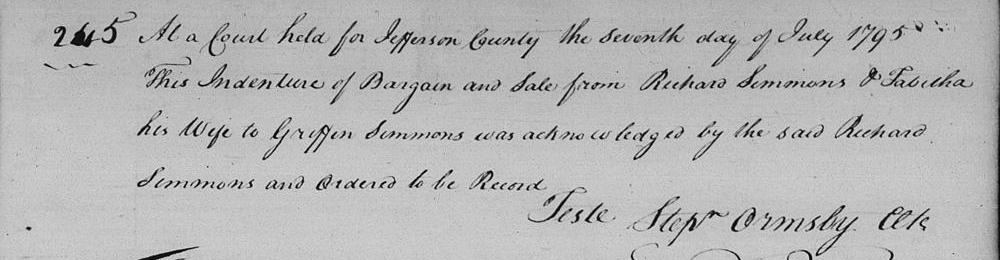 245 At a Court held for Jefferson County the seventh day of July 1795
This Indenture of Bargain and Sale from Richard Simmons & Tabitha
his Wife to Griffin Simmons was acknowledged by the said Richard
Simmons and Ordered to be Record
Teste Stepn Ormsby Clk